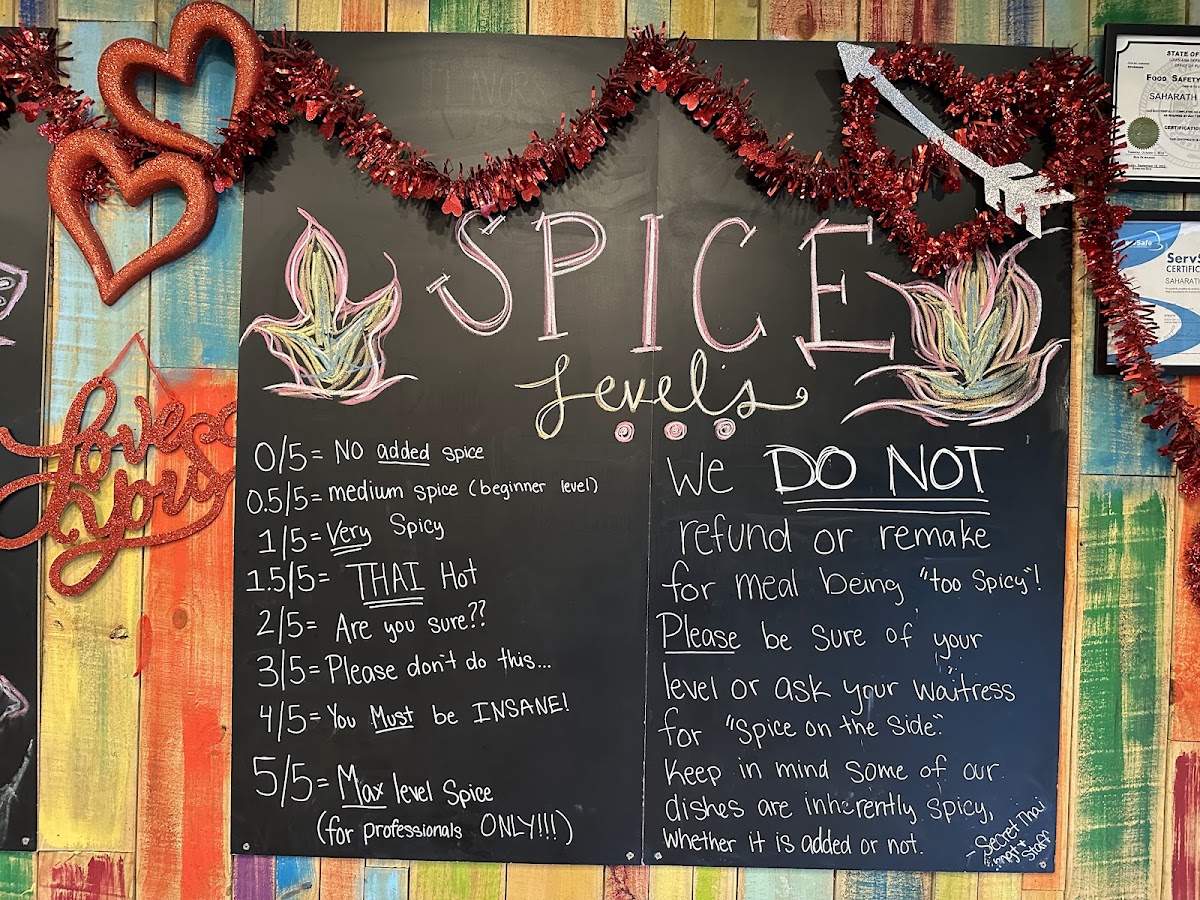 SPICE
Level's
0/5= NO added spice
0.5/5= medium spice (beginner level)
1/5= Very Spicy
1.5/5= THAI Hot
2/5= Are you sure??
3/5= Please don't do this...
4/5= You Must be INSANE!
5/5= Max level Spice
(for professionals ONLY!!!)
We DO NOT
refund or remake
for meal being "too spicy"!
Please be sure of your
level or ask your waitress
for "Spice on the Side".
Keep in mind some of our
dishes are inherently spicy,
whether it is added or not.
- Secret Thai
mgt + Staff
Love
You
STATE OF
FOOD SAFETY
SAHARATH
CERTIFICATION
ServS
CERTIFIC
SAHARATH